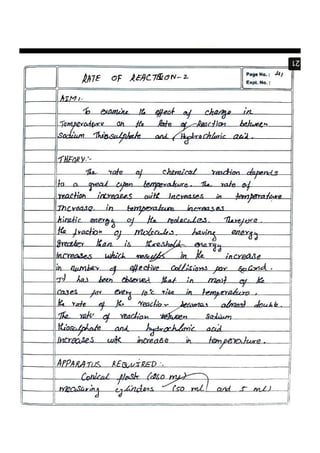 21
Page No.: 21
Expt. No.:
RATE OF REACTION-2
AIM:-
To examine the effect of change in
Temperature on the Rate of Reaction between
Sodium Thiosulphate and Hydrochloric acid.
THEORY:-
The rate of chemical reaction depends
to a great upon temperature. The rate of
reaction increases with increases in temperature
Increase in temperature increases
kinetic energy of the molecules. Therefore,
the fraction of molecules, having energy
greater than is threshold energy
increases which results in the increase
in number of effective collisions per second.
It has been observed that in most of the
cases for every 10°c rise in temperature,
the rate of the reaction becomes almost double.
The rate of reaction between sodium
thiosulphate and hydrochloric acid
increases with increase in temperature.
APPARATUS REQUIRED:-
Conical flask (250 ml)
measuring cylinders (50 ml and 5 ml)